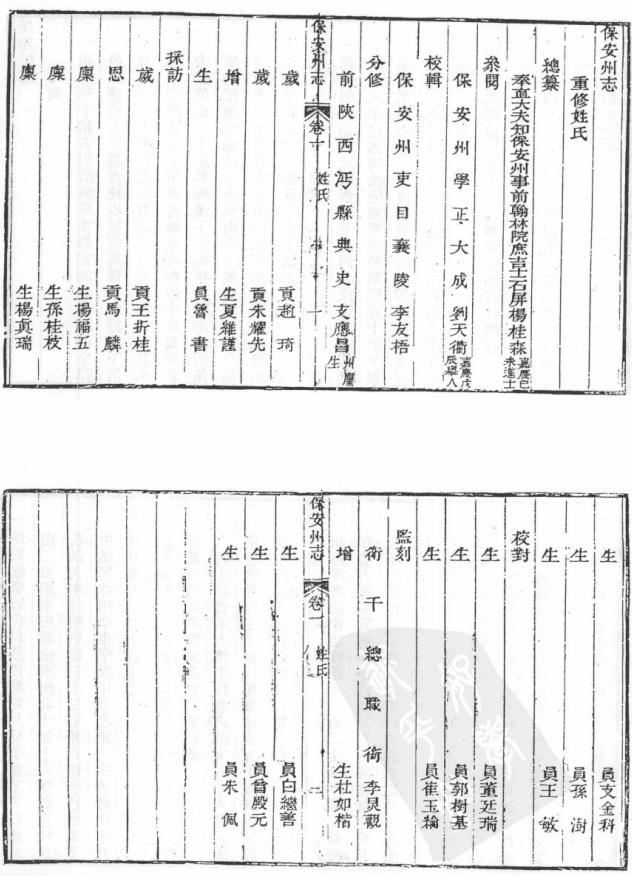 保安州志
重修姓氏
總纂
奉直大夫知保安州事前翰林院庶吉士石屏楊桂森嘉慶己未進士
叅閱
保安州學正大成劉天衢嘉慶戊辰舉人
校輯
保安州吏目襄陵李友梧
分修
前陝西沔縣典史支應昌州廩生
保安州志 卷一 姓氏 一
歲貢趙琦
歲貢朱耀先
增生夏維謹
生員魯書
採訪
歲貢王折桂
恩貢馬麟
廩生楊福五
廩生孫桂枝
廩生楊貞瑞
生員支金科
生員孫澍
生員王敏
校對
生員董廷瑞
生員郭樹基
生員崔玉綸
監刻
衛千總職銜李炅觀
增生杜如楷
保安州志 卷一 姓氏 二
生員白繼善
生員曾殿元
生員朱佩